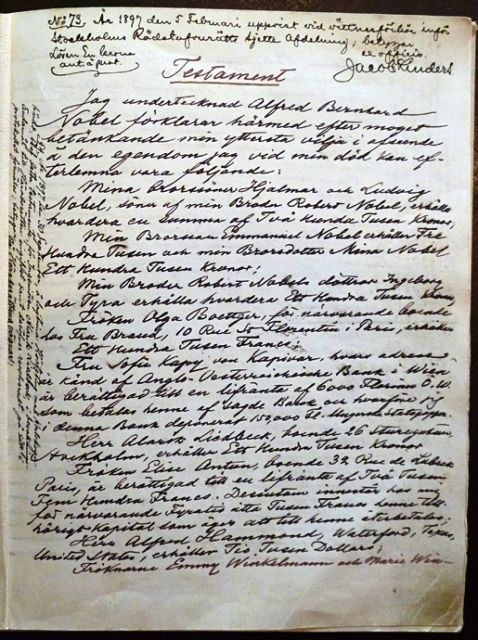 No 73. År 1897 den 5 Februari uppvist vid vittnesförhör inför
Stockholms Rådstufvurätts sjette Afdelning; betygar
ex officio.
Jacob Linders
Lösen En krona
Testament
Jag undertecknad Alfred Bernhard
Nobel förklarar härmed efter moget
betänkande min yttersta vilja i afseende
å den egendom jag vid min död kan ef-
terlemna vara följande:
Mina Brorsöner Hjalmar och Ludvig
Nobel, söner af min Broder Robert Nobel, erhålla
hvardera en summa af Två Hundra Tusen Kronor;
Min Brorson Emmanuel Nobel erhåller Tre
Hundra Tusen och min Brorsdotter Mina Nobel
Ett Hundra Tusen Kronor;
Min Broder Robert Nobels döttrar Ingeborg
och Tyra erhålla hvardera Ett Hundra Tusen Kronor;
Fröken Olga Boettger, för närvarande boende
hos Fru Brand, 10 Rue St Florentin i Paris, erhåller
Ett Hundra Tusen Francs;
Fru Sofie Kapy von Kapivar, hvars adress
är känd af Anglo-Oesterreichische Bank i Wien
är berättigad till en lifränta af 6000 Florins Ö.W.
som betalas henne af sagde Bank och hvarföre jag
i denna Bank deponerat 150,000 Fl.
Herr Alarik Liedbeck, boende 26 Sturegatan,
Stockholm, erhåller Ett Hundra Tusen Kronor;
Fröken Elise Antun, boende 32 Rue de Lubeck
Paris, är berättigad till en lifränta af Två Tusen
Fem Hundra Francs. Desutom innestår hos mig
för närvarande Fyratio åtta Tusen Francs henne till-
hörigt Kapital som äger att till henne återbetalas;
Herr Alfred Hammond, Waterford, Texas,
United States, erhåller Tio Tusen Dollars;
Fröknarne Emmy Winkelmann och Marie Win-